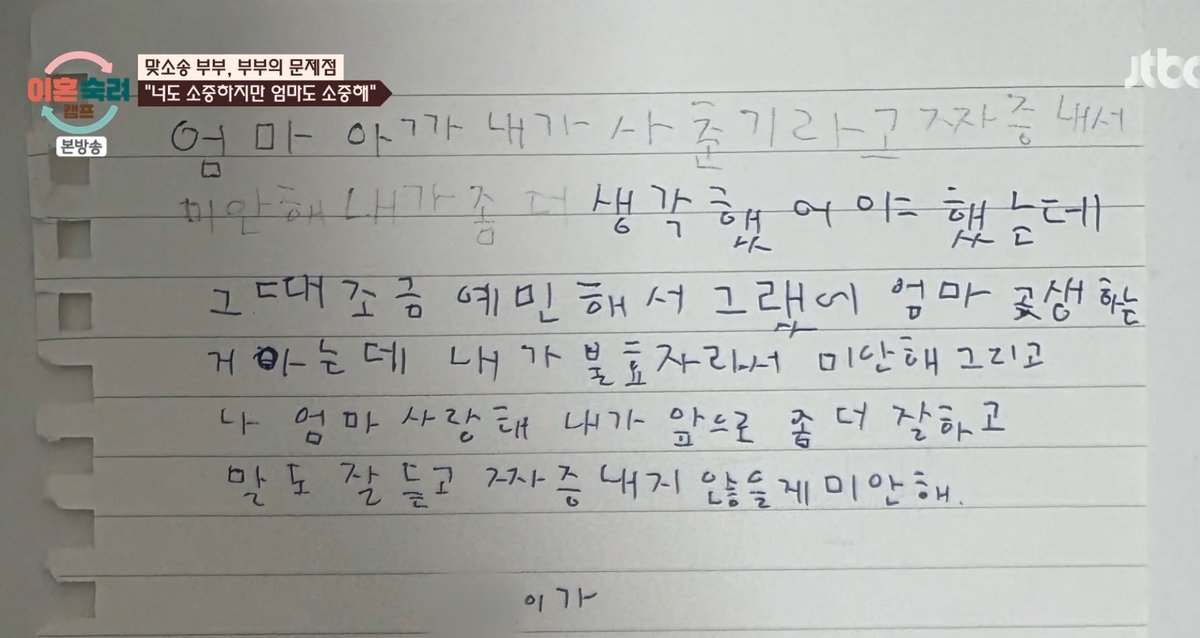 맞소송 부부, 부부의 문제점
"너도 소중하지만 엄마도 소중해"
이혼숙려
캠프
본방송
jtbc
엄마 아까 내가 사춘기라고 짜증내서
미안해 내가 좀 더 생각했어야 했는데
그때 조금 예민해서 그랬에 엄마 곷생하는
거 아는데 내가 불효자라서 미안해 그리고
나 엄마 사랑해 내가 앞으로 좀 더 잘하고
말도 잘 듣고 짜증내지 않을게 미안해.
이가